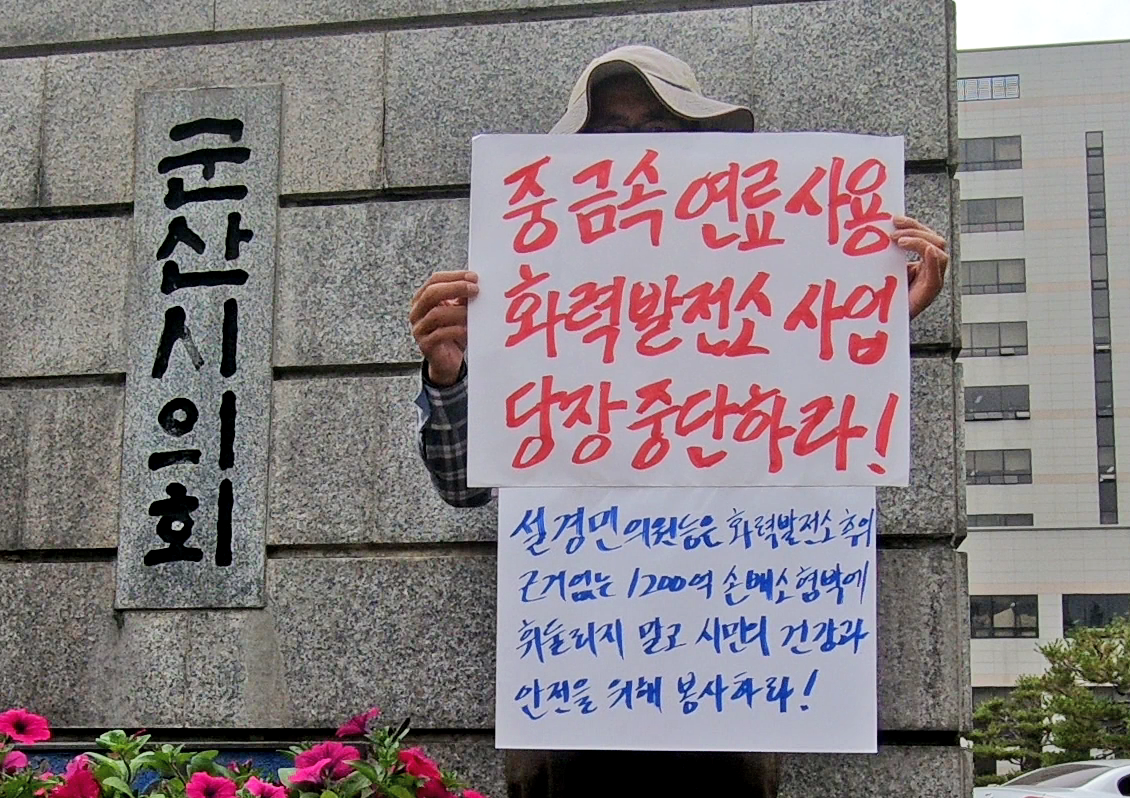 군산시의회
중금속 연료 사용
화력발전소 사업
당장 중단하라!
설경민 의원등은 화력발전소측의
근거없는 1200억 손배소 협박에
휘둘리지 말고 시민의 건강과
안전을 위해 봉사하라!